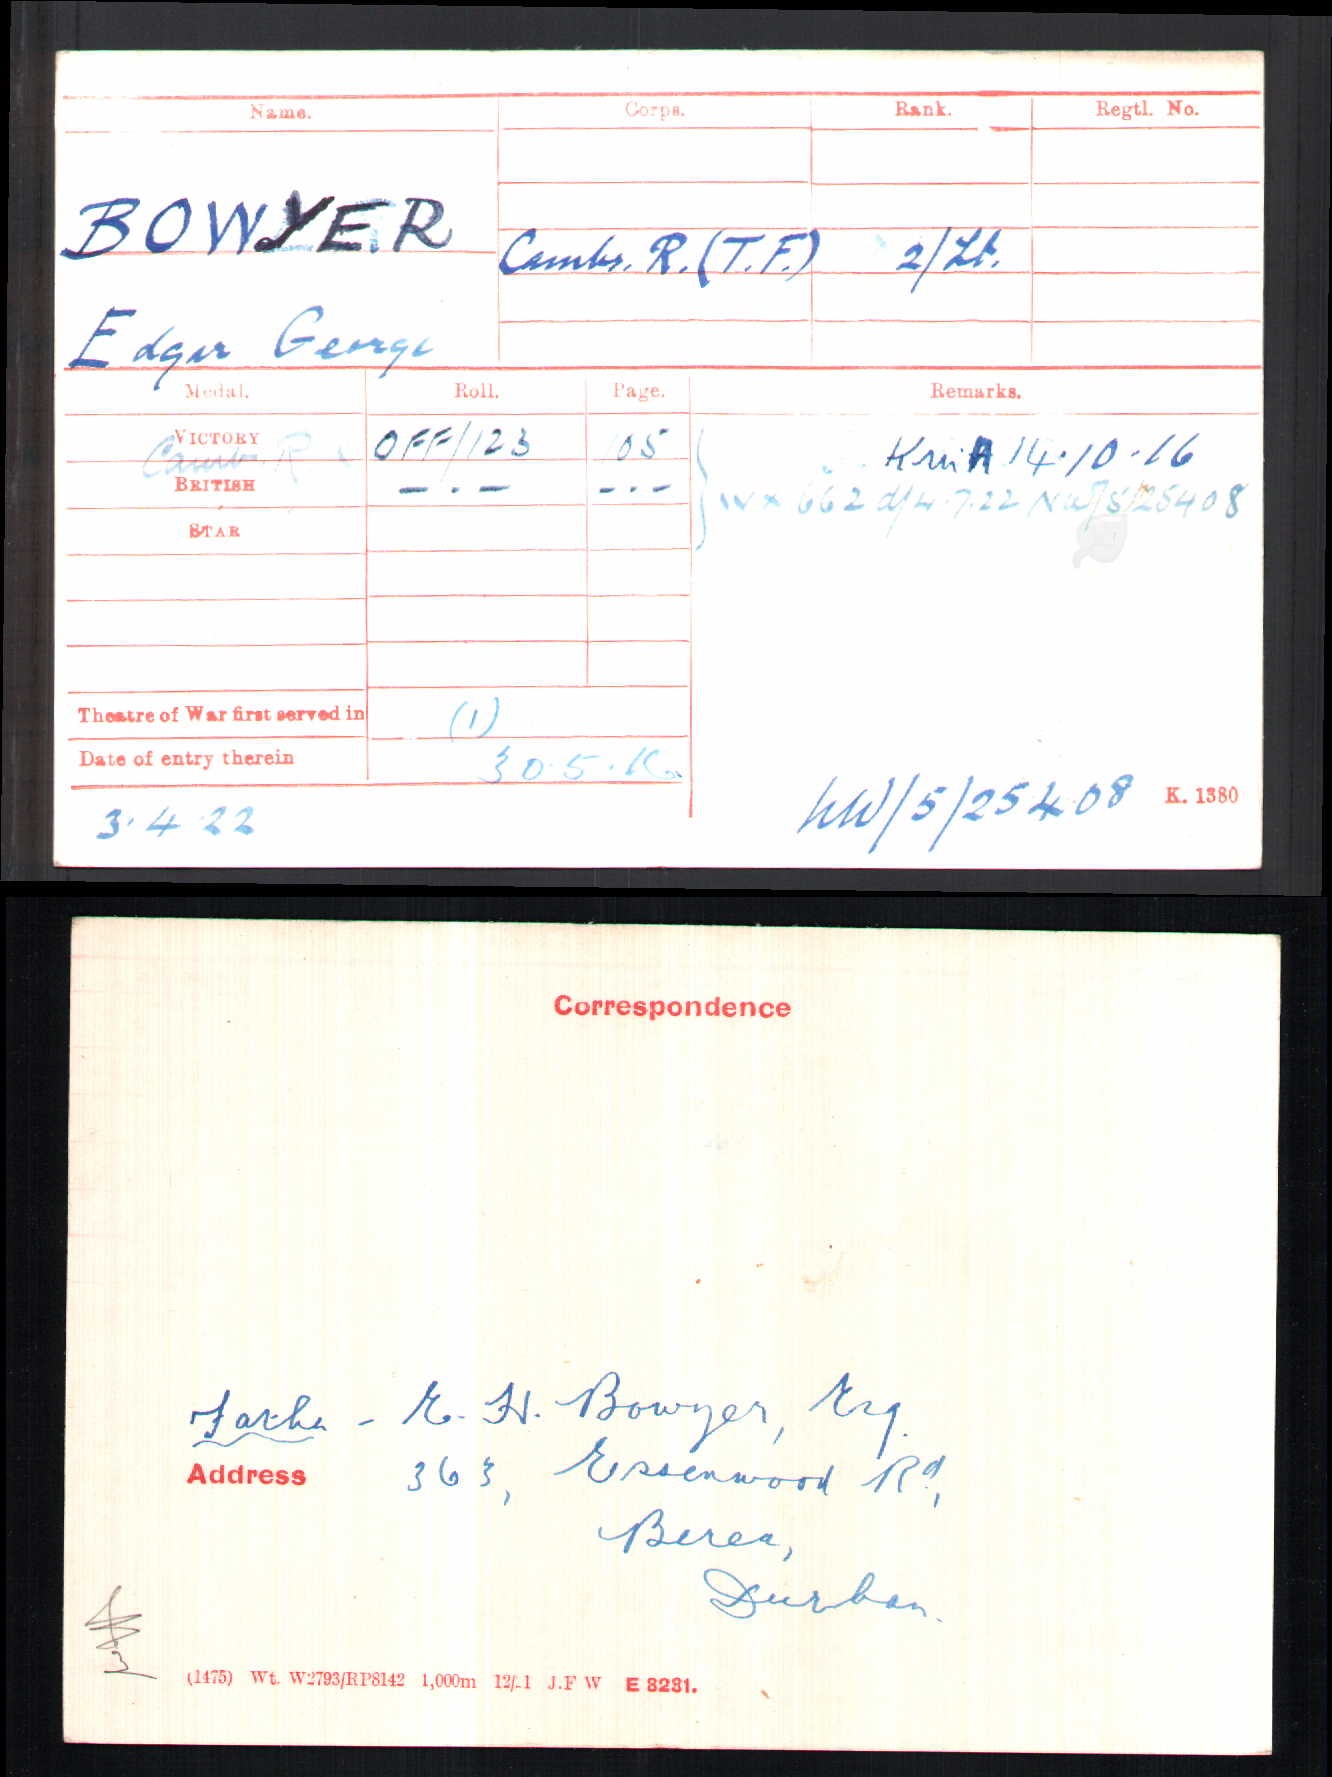 Name. Corps. Rank. Regtl. No.
BOWYER
Cambs. R. (T.F.) 2/Lt.
Edgar George
Medal. Roll. Page. Remarks.
VICTORY OFF/123 105 K in A 14.10.16
Cambs R
BRITISH — . — - . - W x 662 d/4.7.22 NW/5/25408
STAR
Theatre of War first served in (1)
Date of entry therein 30.5.16
3.4.22 NW/5/25408 K. 1380
Correspondence
Father - E. H. Bowyer, Esq.
Address 363, Essenwood Rd,
Berea,
Durban.
(1475) Wt. W2793/RP8142 1,000m J.F W E 8281.